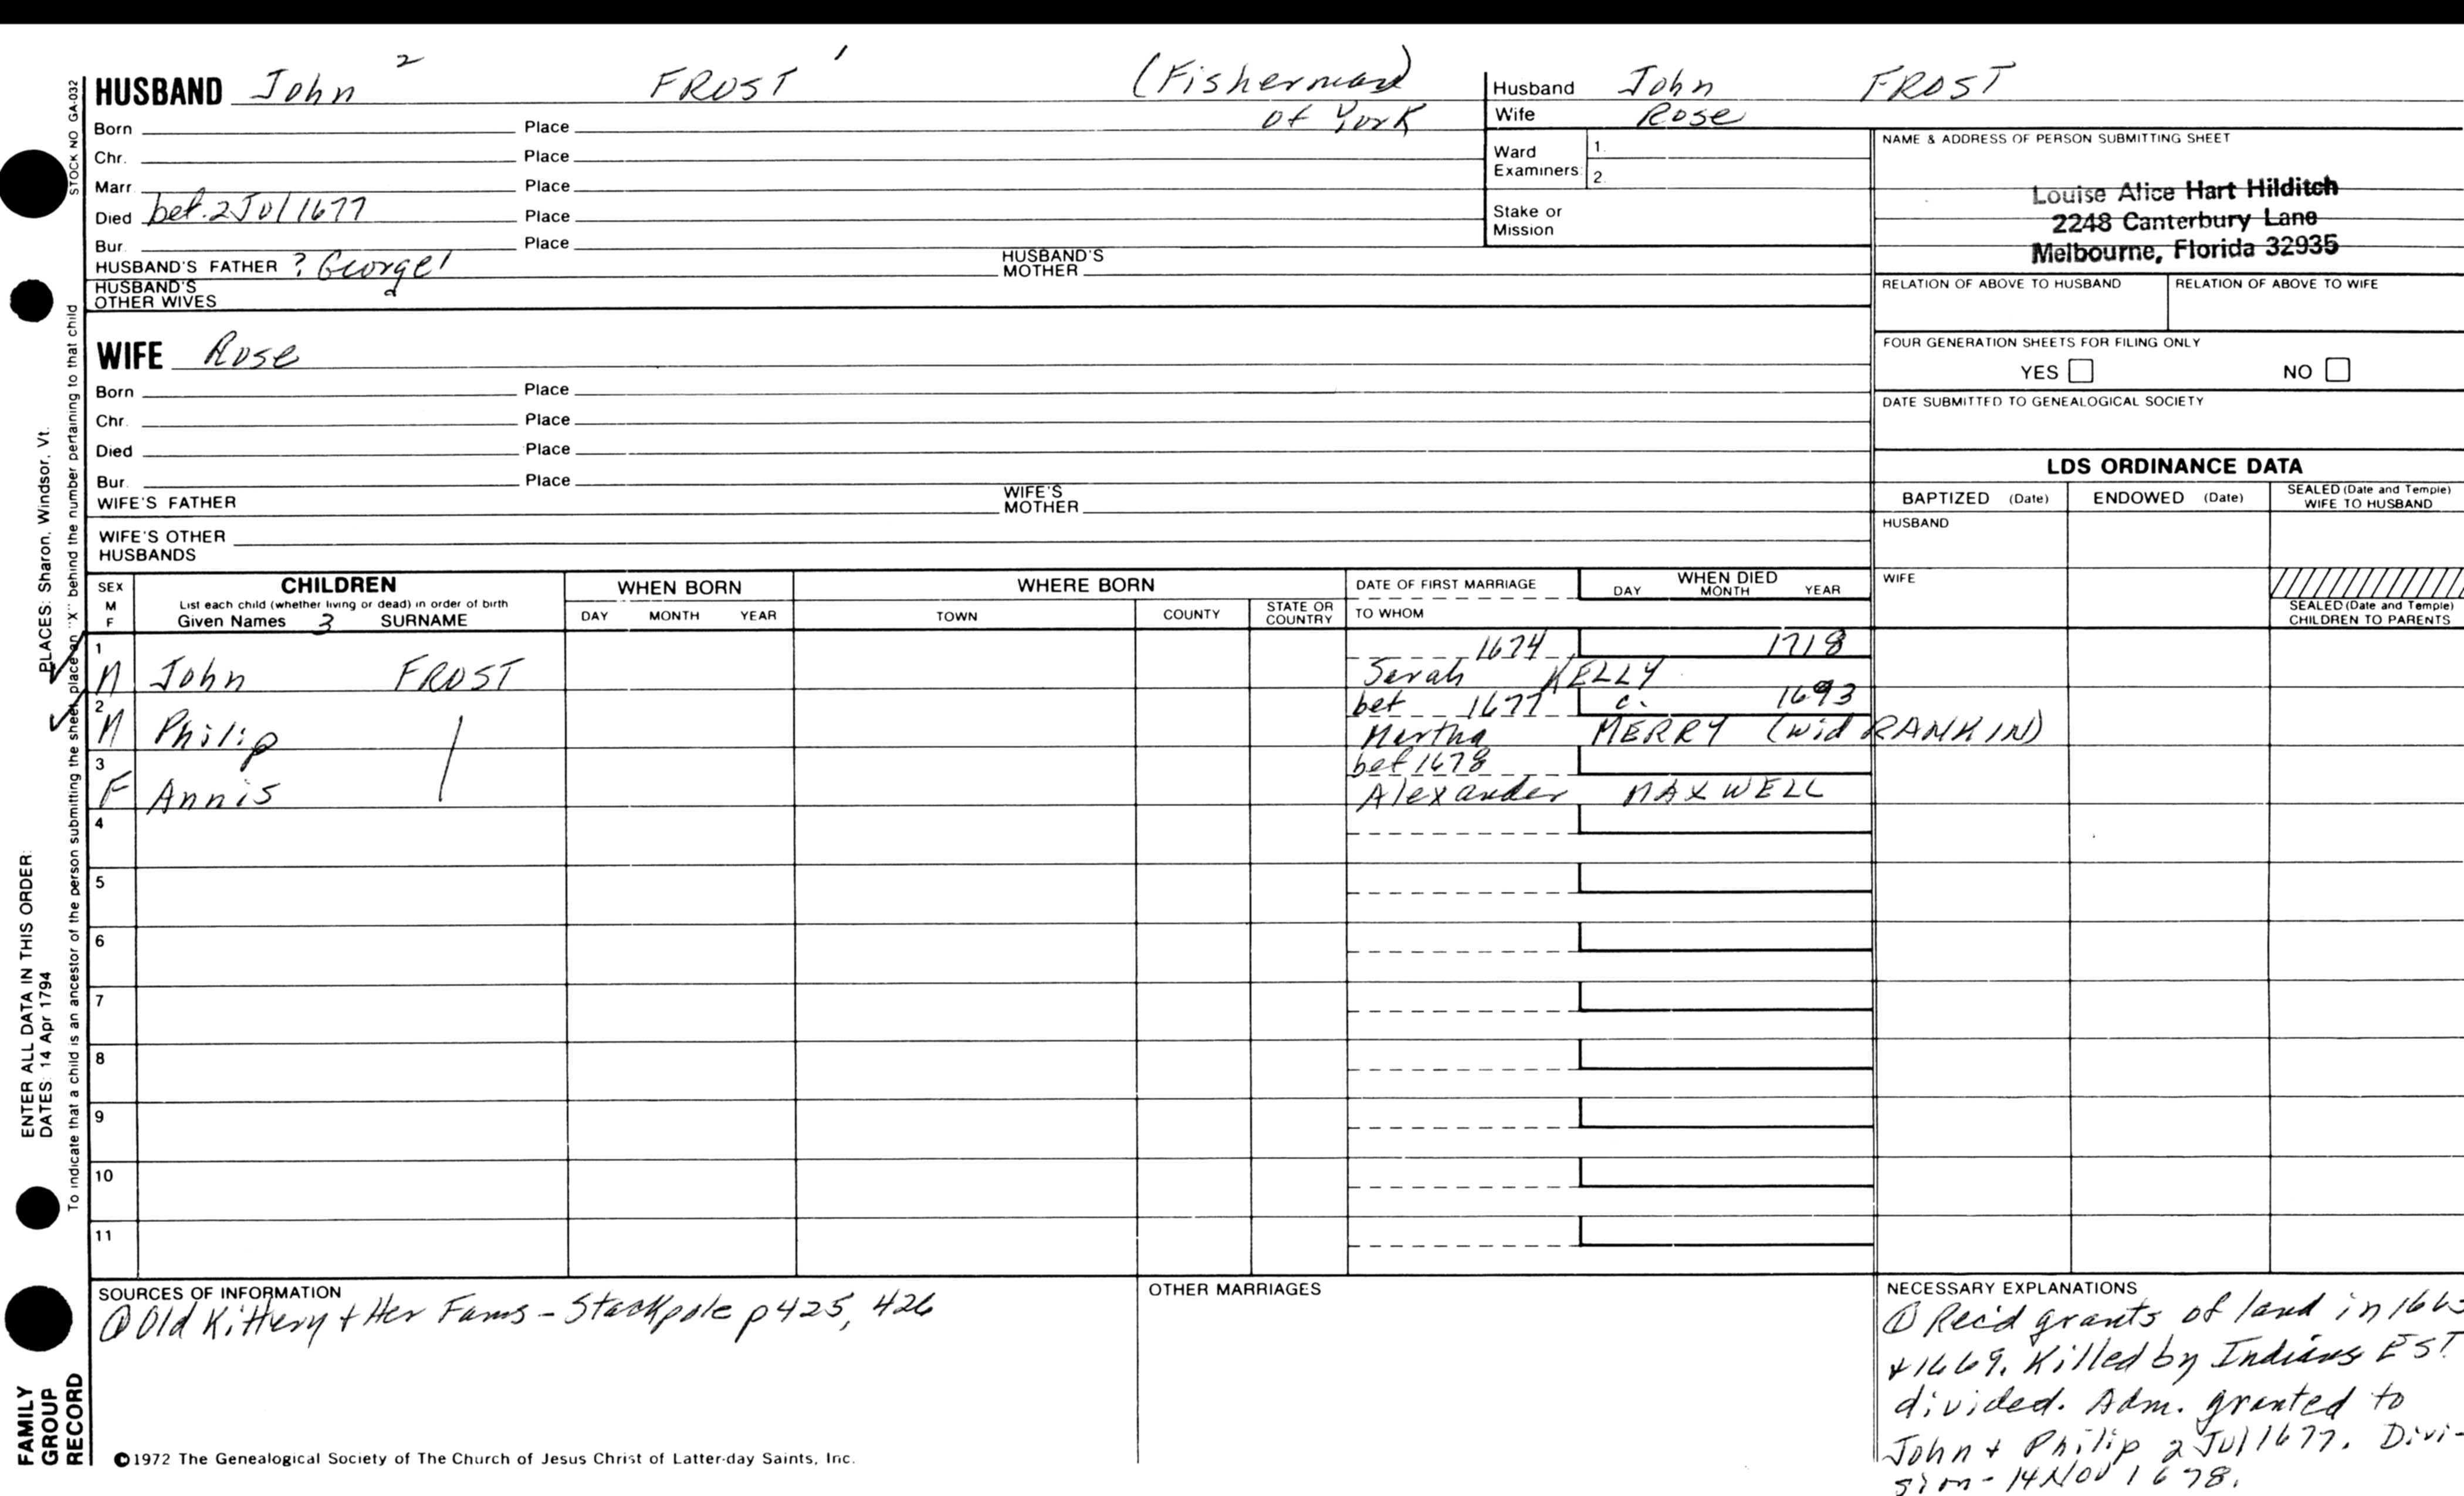 HUSBAND John 2 FROST 1 (Fisherman
of York
Born Place
Chr. Place
Marr. Place
Died bef. 2 Jul 1677 Place
Bur. Place
HUSBAND'S FATHER ? George 1 HUSBAND'S MOTHER
HUSBAND'S OTHER WIVES
Husband John FROST
Wife Rose
Ward Examiners: 1.
2.
Stake or Mission
NAME & ADDRESS OF PERSON SUBMITTING SHEET
Louise Alice Hart Hilditch
2248 Canterbury Lane
Melbourne, Florida 32935
RELATION OF ABOVE TO HUSBAND RELATION OF ABOVE TO WIFE
FOUR GENERATION SHEETS FOR FILING ONLY
YES NO
DATE SUBMITTED TO GENEALOGICAL SOCIETY
WIFE Rose
Born Place
Chr. Place
Died Place
Bur. Place
WIFE'S FATHER WIFE'S MOTHER
WIFE'S OTHER HUSBANDS
LDS ORDINANCE DATA
BAPTIZED (Date) ENDOWED (Date) SEALED (Date and Temple) WIFE TO HUSBAND
HUSBAND
WIFE
SEALED (Date and Temple) CHILDREN TO PARENTS
SEX M F
CHILDREN
List each child (whether living or dead) in order of birth
Given Names 3 SURNAME
WHEN BORN
DAY MONTH YEAR
WHERE BORN
TOWN COUNTY STATE OR COUNTRY
DATE OF FIRST MARRIAGE
TO WHOM
WHEN DIED
DAY MONTH YEAR
1 1674 1718
M John FROST Sarah KELLY
2 bet 1677 c. 1693
M Philip Martha MERRY (wid RANKIN)
3 bef 1678
F Annis Alexander MAXWELL
4
5
6
7
8
9
10
11
SOURCES OF INFORMATION
① Old Kittery + Her Fams - Stackpole p 425, 426
OTHER MARRIAGES
NECESSARY EXPLANATIONS
① Rec'd grants of land in
+ 1669. Killed by Indians EST
divided. Adm. granted to
John + Philip 2 Jul 1677. Divi-
sion - 14 Nov 1678.
©1972 The Genealogical Society of The Church of Jesus Christ of Latter-day Saints, Inc.
STOCK NO GA-032
To indicate that a child is an ancestor of the person submitting the sheet, place an "X" behind the number pertaining to that child
PLACES: Sharon, Windsor, Vt.
ENTER ALL DATA IN THIS ORDER:
DATES: 14 Apr 1794
FAMILY
GROUP
RECORD